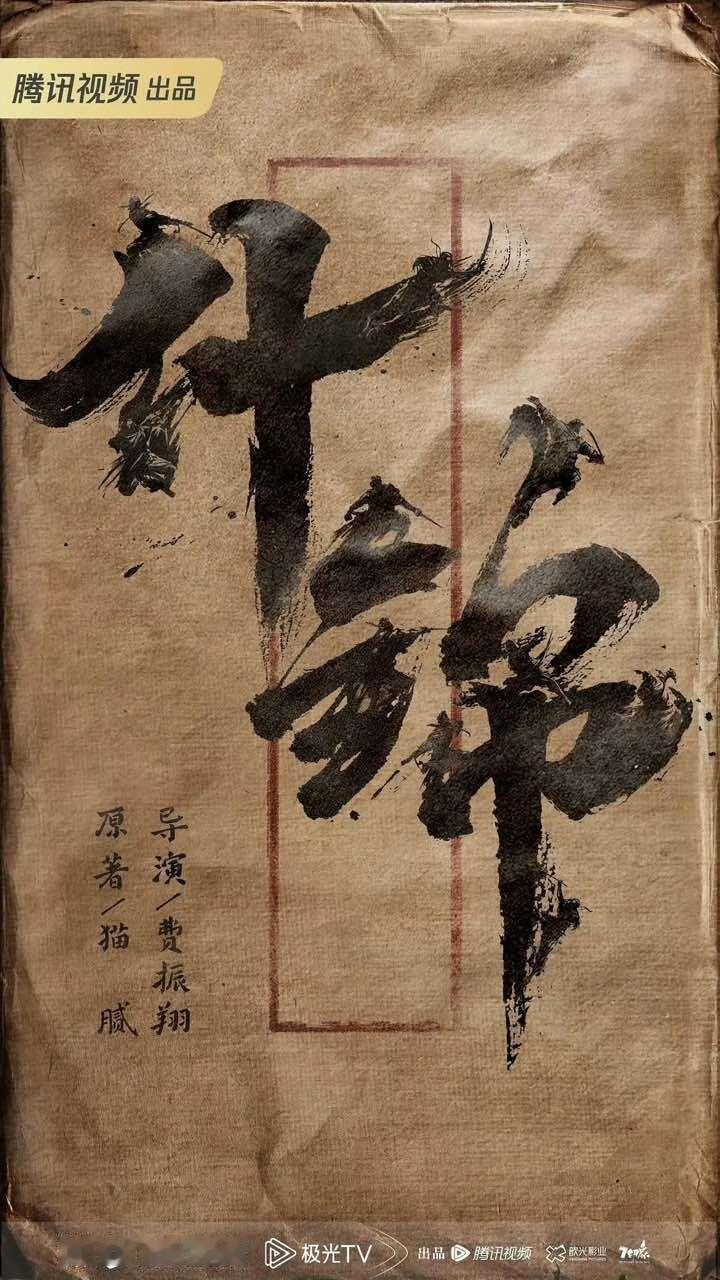 腾讯视频 出品
什锦
导演/费振翔
原著/猫腻
极光TV 出品 腾讯视频 歆光影业